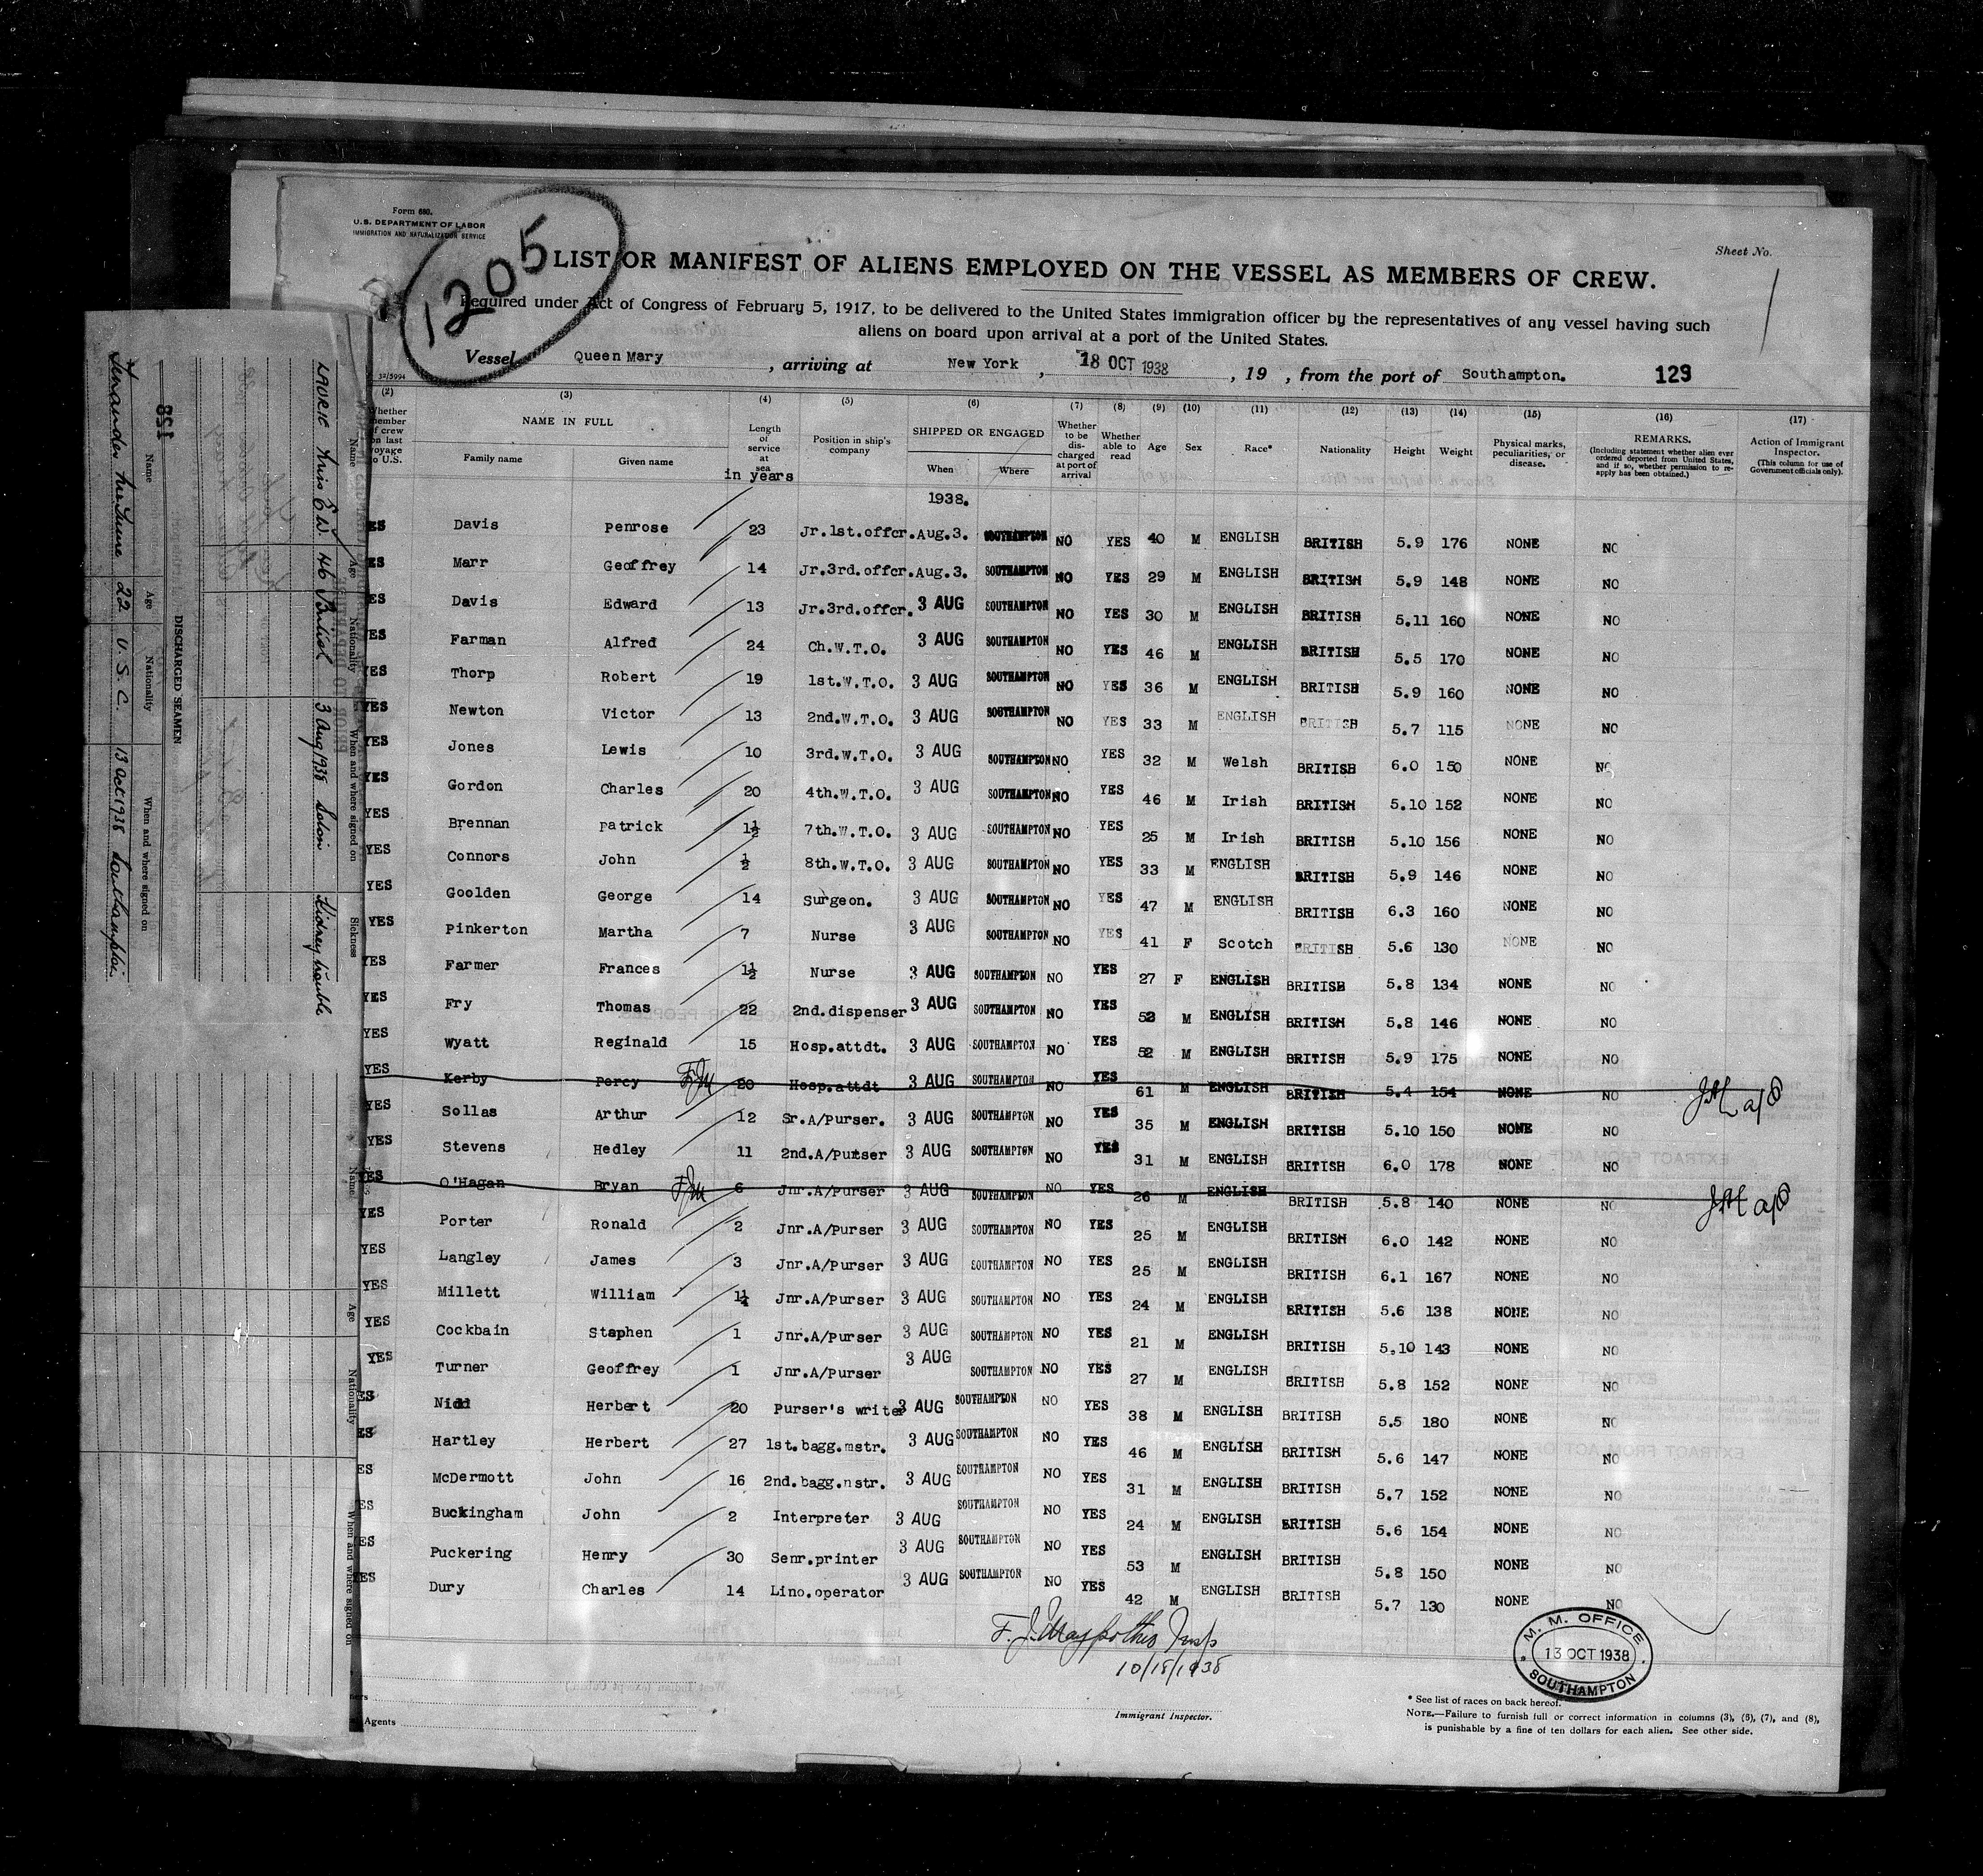 Form 680.
U.S. DEPARTMENT OF LABOR
IMMIGRATION AND NATURALIZATION SERVICE
1205
Sheet No.
1
LIST OR MANIFEST OF ALIENS EMPLOYED ON THE VESSEL AS MEMBERS OF CREW.
Required under Act of Congress of February 5, 1917, to be delivered to the United States immigration officer by the representatives of any vessel having such
aliens on board upon arrival at a port of the United States.
Vessel Queen Mary, arriving at New York, 18 OCT 1938, 19 , from the port of Southampton. 129
(2) (3) (4) (5) (6) (7) (8) (9) (10) (11) (12) (13) (14) (15) (16) (17)
Whether member of crew on last voyage to U.S. NAME IN FULL Family name Given name Length of service at sea in years Position in ship's company SHIPPED OR ENGAGED When Where Whether to be discharged at port of arrival Whether able to read Age Sex Race* Nationality Height Weight Physical marks, peculiarities, or disease. REMARKS. (Including statement whether alien ever ordered deported from United States, and if so, whether permission to reapply has been obtained.) Action of Immigrant Inspector. (This column for use of Government officials only).
1938.
ES Davis Penrose 23 Jr.1st.offcr. Aug.3. SOUTHAMPTON NO YES 40 M ENGLISH BRITISH 5.9 176 NONE NO
ES Marr Geoffrey 14 Jr.3rd.offcr. Aug.3. SOUTHAMPTON NO YES 29 M ENGLISH BRITISH 5.9 148 NONE NO
ES Davis Edward 13 Jr.3rd.offcr. 3 AUG SOUTHAMPTON NO YES 30 M ENGLISH BRITISH 5.11 160 NONE NO
YES Farman Alfred 24 Ch.W.T.O. 3 AUG SOUTHAMPTON NO YES 46 M ENGLISH BRITISH 5.5 170 NONE NO
YES Thorp Robert 19 1st.W.T.O. 3 AUG SOUTHAMPTON NO YES 36 M ENGLISH BRITISH 5.9 160 NONE NO
YES Newton Victor 13 2nd.W.T.O. 3 AUG SOUTHAMPTON NO YES 33 M ENGLISH BRITISH 5.7 115 NONE NO
YES Jones Lewis 10 3rd.W.T.O. 3 AUG SOUTHAMPTON NO YES 32 M Welsh BRITISH 6.0 150 NONE NO
YES Gordon Charles 20 4th.W.T.O. 3 AUG SOUTHAMPTON NO YES 46 M Irish BRITISH 5.10 152 NONE NO
YES Brennan Patrick 1½ 7th.W.T.O. 3 AUG SOUTHAMPTON NO YES 25 M Irish BRITISH 5.10 156 NONE NO
YES Connors John ½ 8th.W.T.O. 3 AUG SOUTHAMPTON NO YES 33 M ENGLISH BRITISH 5.9 146 NONE NO
YES Goolden George 14 Surgeon. 3 AUG SOUTHAMPTON NO YES 47 M ENGLISH BRITISH 6.3 160 NONE NO
YES Pinkerton Martha 7 Nurse 3 AUG SOUTHAMPTON NO YES 41 F Scotch BRITISH 5.6 130 NONE NO
YES Farmer Frances 1½ Nurse 3 AUG SOUTHAMPTON NO YES 27 F ENGLISH BRITISH 5.8 134 NONE NO
YES Fry Thomas 22 2nd.dispenser 3 AUG SOUTHAMPTON NO YES 52 M ENGLISH BRITISH 5.8 146 NONE NO
YES Wyatt Reginald 15 Hosp.attdt. 3 AUG SOUTHAMPTON NO YES 52 M ENGLISH BRITISH 5.9 175 NONE NO
YES Kerby Percy 20 Hosp.attdt 3 AUG SOUTHAMPTON NO YES 61 M ENGLISH BRITISH 5.4 154 NONE NO
YES Sollas Arthur 12 Sr.A/Purser. 3 AUG SOUTHAMPTON NO YES 35 M ENGLISH BRITISH 5.10 150 NONE NO
YES Stevens Hedley 11 2nd.A/Purser 3 AUG SOUTHAMPTON NO YES 31 M ENGLISH BRITISH 6.0 178 NONE NO
YES O'Hagan Bryan 6 Jnr.A/Purser 3 AUG SOUTHAMPTON NO YES 26 M ENGLISH BRITISH 5.8 140 NONE NO
YES Porter Ronald 2 Jnr.A/Purser 3 AUG SOUTHAMPTON NO YES 25 M ENGLISH BRITISH 6.0 142 NONE NO
YES Langley James 3 Jnr.A/Purser 3 AUG SOUTHAMPTON NO YES 25 M ENGLISH BRITISH 6.1 167 NONE NO
YES Millett William 1¼ Jnr.A/Purser 3 AUG SOUTHAMPTON NO YES 24 M ENGLISH BRITISH 5.6 138 NONE NO
YES Cockbain Stephen 1 Jnr.A/Purser 3 AUG SOUTHAMPTON NO YES 21 M ENGLISH BRITISH 5.10 143 NONE NO
YES Turner Geoffrey 1 Jnr.A/Purser 3 AUG SOUTHAMPTON NO YES 27 M ENGLISH BRITISH 5.8 152 NONE NO
ES Nidd Herbert 20 Purser's writer 3 AUG SOUTHAMPTON NO YES 38 M ENGLISH BRITISH 5.5 180 NONE NO
ES Hartley Herbert 27 1st.bagg.mstr. 3 AUG SOUTHAMPTON NO YES 46 M ENGLISH BRITISH 5.6 147 NONE NO
ES McDermott John 16 2nd.bagg.mstr. 3 AUG SOUTHAMPTON NO YES 31 M ENGLISH BRITISH 5.7 152 NONE NO
ES Buckingham John 2 Interpreter 3 AUG SOUTHAMPTON NO YES 24 M ENGLISH BRITISH 5.6 154 NONE NO
ES Puckering Henry 30 Senr.printer 3 AUG SOUTHAMPTON NO YES 53 M ENGLISH BRITISH 5.8 150 NONE NO
ES Dury Charles 14 Lino.operator 3 AUG SOUTHAMPTON NO YES 42 M ENGLISH BRITISH 5.7 130 NONE NO
10/18/1938
Immigrant Inspector.
M. M. OFFICE
13 OCT 1938
SOUTHAMPTON
* See list of races on back hereof.
NOTE.—Failure to furnish full or correct information in columns (3), (6), (7), and (8),
is punishable by a fine of ten dollars for each alien. See other side.
Agents
32/5994
128
Name Age Nationality When and where signed on
22 U.S.C. 13 Oct 1938 Southampton
DISCHARGED SEAMEN
Name Age Nationality When and where signed on Sickness
LAURIE Miss E W. 46 British 3 Aug 1938 Soton Kidney trouble
Name Age Nationality When and where signed on